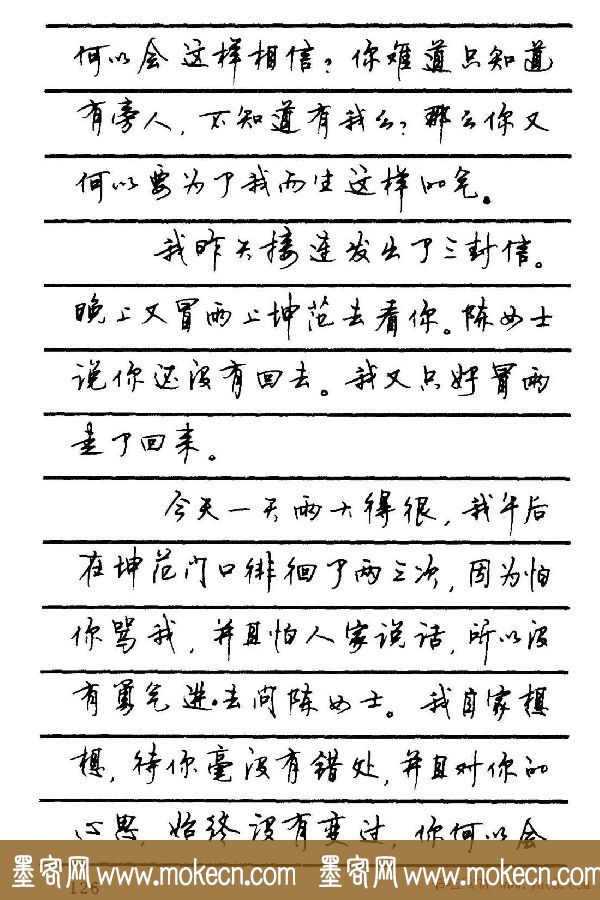 何以会这样相信?你难道只知道
有旁人,不知道有我么?那么你又
何以要为了我而生这样的气。
我昨天接连发出了三封信。
晚上又冒雨上坤范去看你。陈女士
说你还没有回去。我又只好冒雨
走了回来。
今天一天雨大得很,我午后
在坤范门口徘徊了两三次,因为怕
你骂我,并且怕人家说话,所以没
有勇气进去问陈女士。我自家想
想,待你毫没有错处,并且对你的
心思,始终没有变过,你何以会
墨客网 www.mokecn.com 墨客网 www.mokecn.com
126